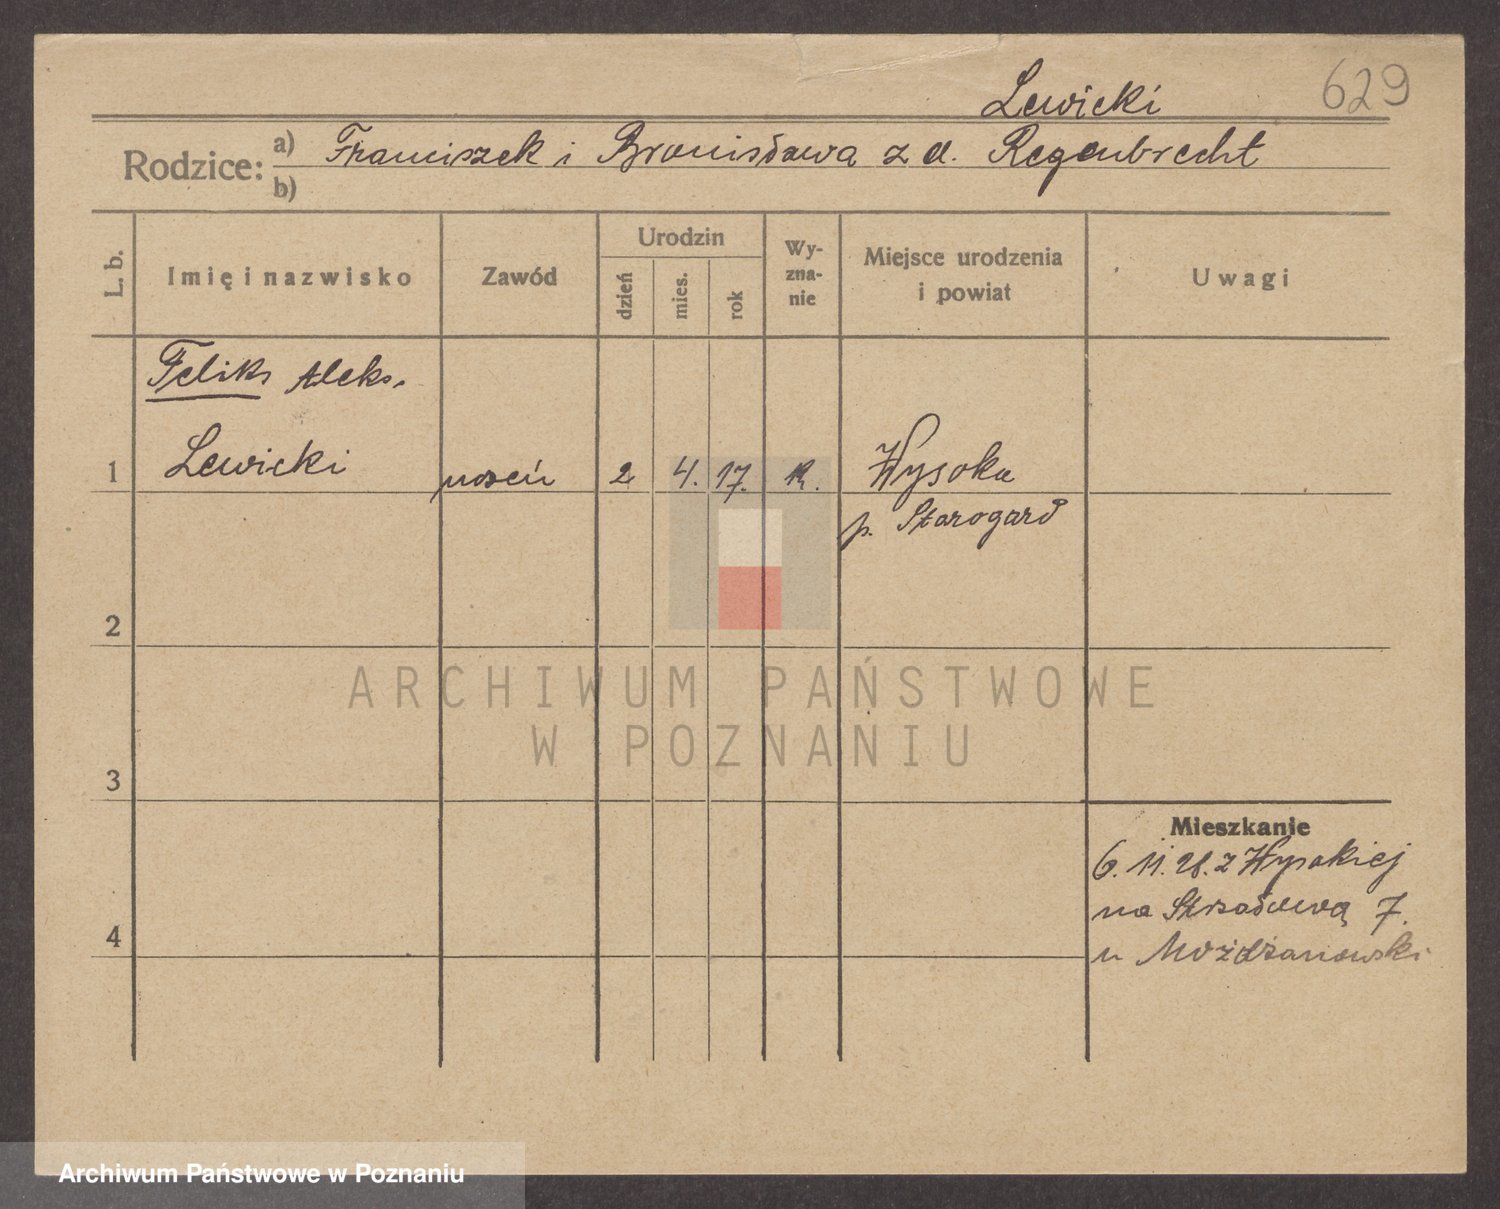 629
Lewicki
Rodzice: a) Franciszek i Bronisława z d. Regenbrecht
b)
L. b.
Imię i nazwisko
Zawód
Urodzin
dzień
mies.
rok
Wy-
zna-
nie
Miejsce urodzenia
i powiat
Uwagi
Feliks Aleks.
1 Lewicki uczeń 2 4. 17. R. Wysoka
p. Starogard
2
3
4
ARCHIWUM PAŃSTWOWE
W POZNANIU
Mieszkanie
6. 11. 28. z Wysokiej
na Strzałową 7.
u Możdżanowski
Archiwum Państwowe w Poznaniu